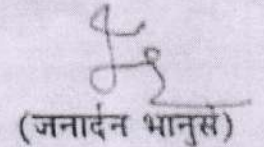 (जनार्दन भानुसे)